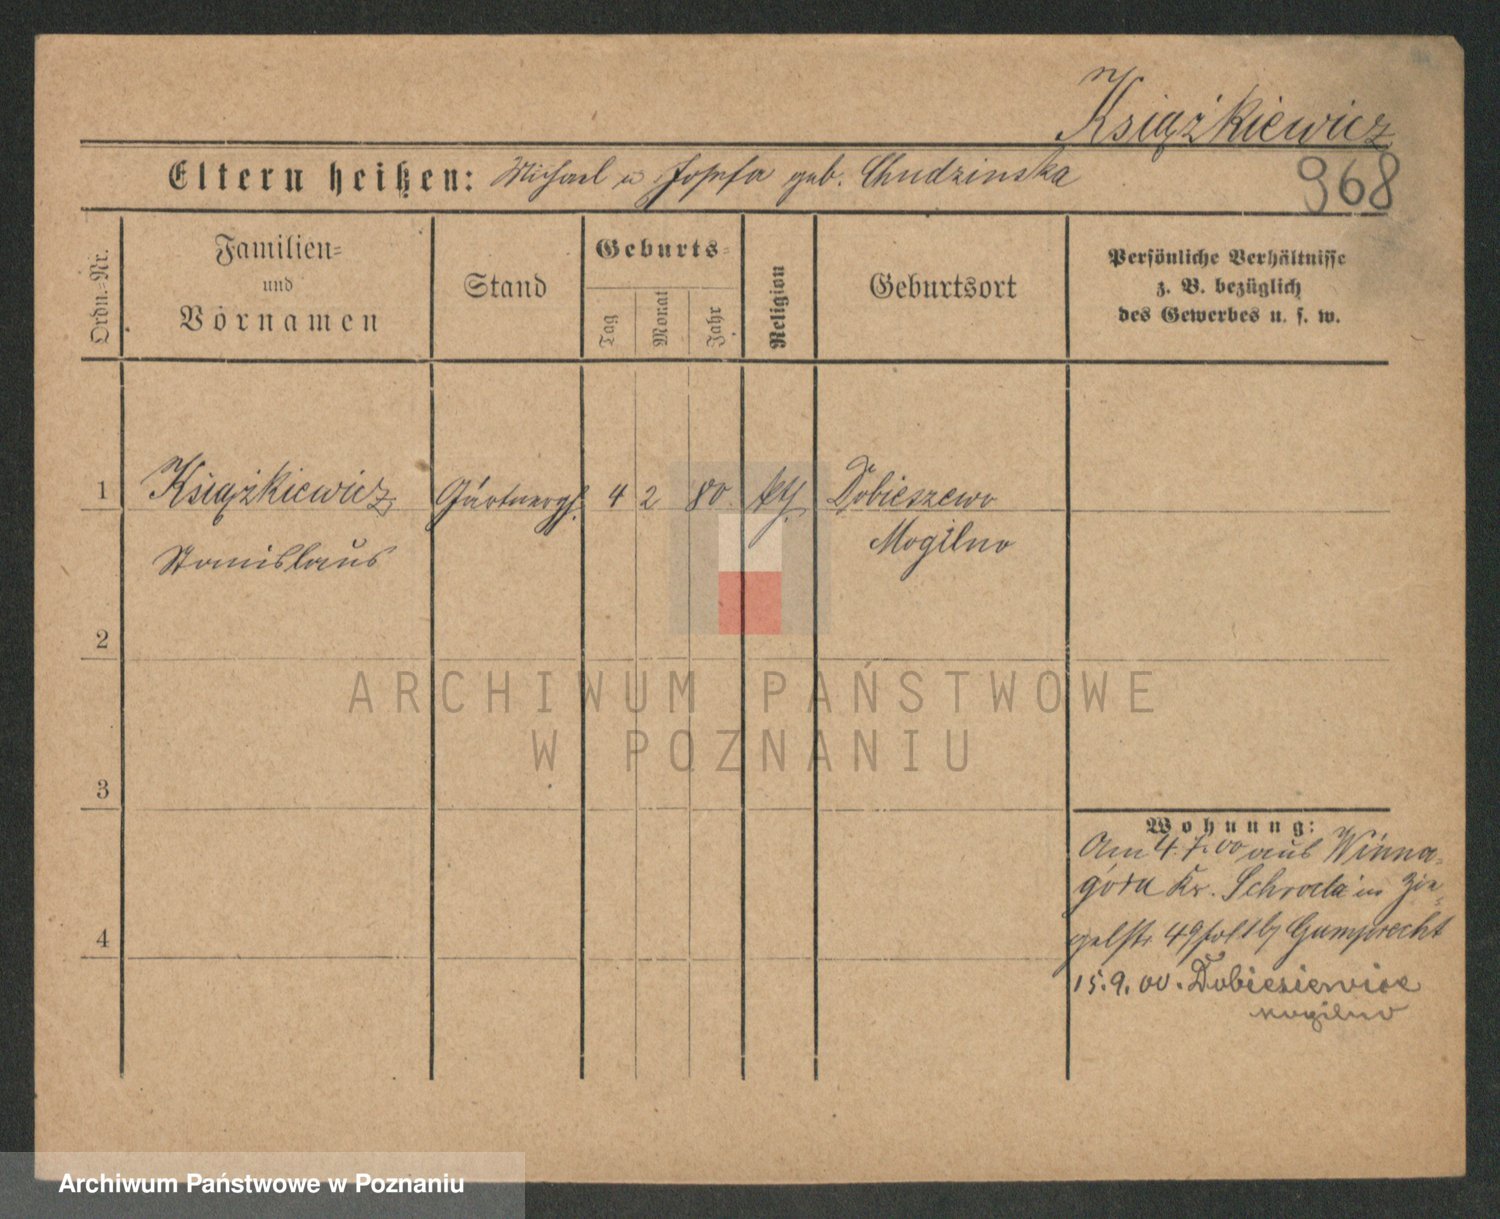 Książkiewicz
Eltern heißen: Michael u Josefa geb. Chudzinska
968
Ordn.-Nr.
Familien-
und
Vornamen
Stand
Geburts-
Tag
Monat
Jahr
Religion
Geburtsort
Persönliche Verhältnisse
z. B. bezüglich
des Gewerbes u. s. w.
1
Książkiewicz
Stanislaus
Gärtnergh.
4 2 80
kth.
Dobieszewo
Mogilno
2
3
4
Wohnung:
Am 4.7.00 aus Winna-
góra Kr. Schroda in Zie-
gelstr 49 Gumprecht
15.9.00. Dobiesiewice
Mogilno
ARCHIWUM PAŃSTWOWE
W POZNANIU
Archiwum Państwowe w Poznaniu